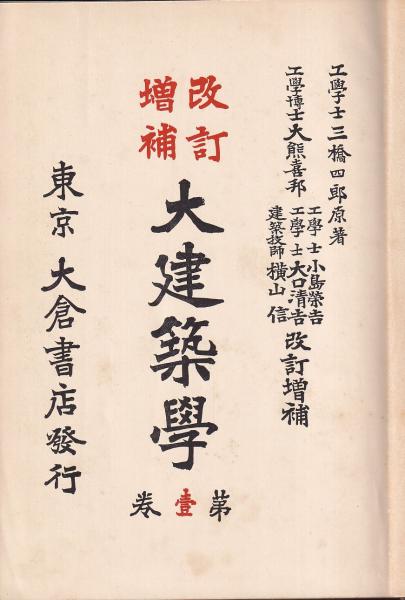 工學士三橋四郎原著
工學博士大熊喜邦
工學士小島榮吉
工學士大口清吉
建築技師橫山信
改訂增補
改訂
增補
大建築學
第壹卷
東京大倉書店發行